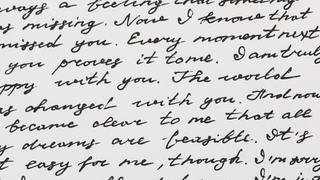 ways a feeling that someth
s missing. Now I know that
missed you. Every moment next
you proves it to me. I am truly
ppy with you. The world
as changed with you. And now
became clear to me that all
y dreams are feasible. It's
t easy for me, though. I'm sorry
I'm